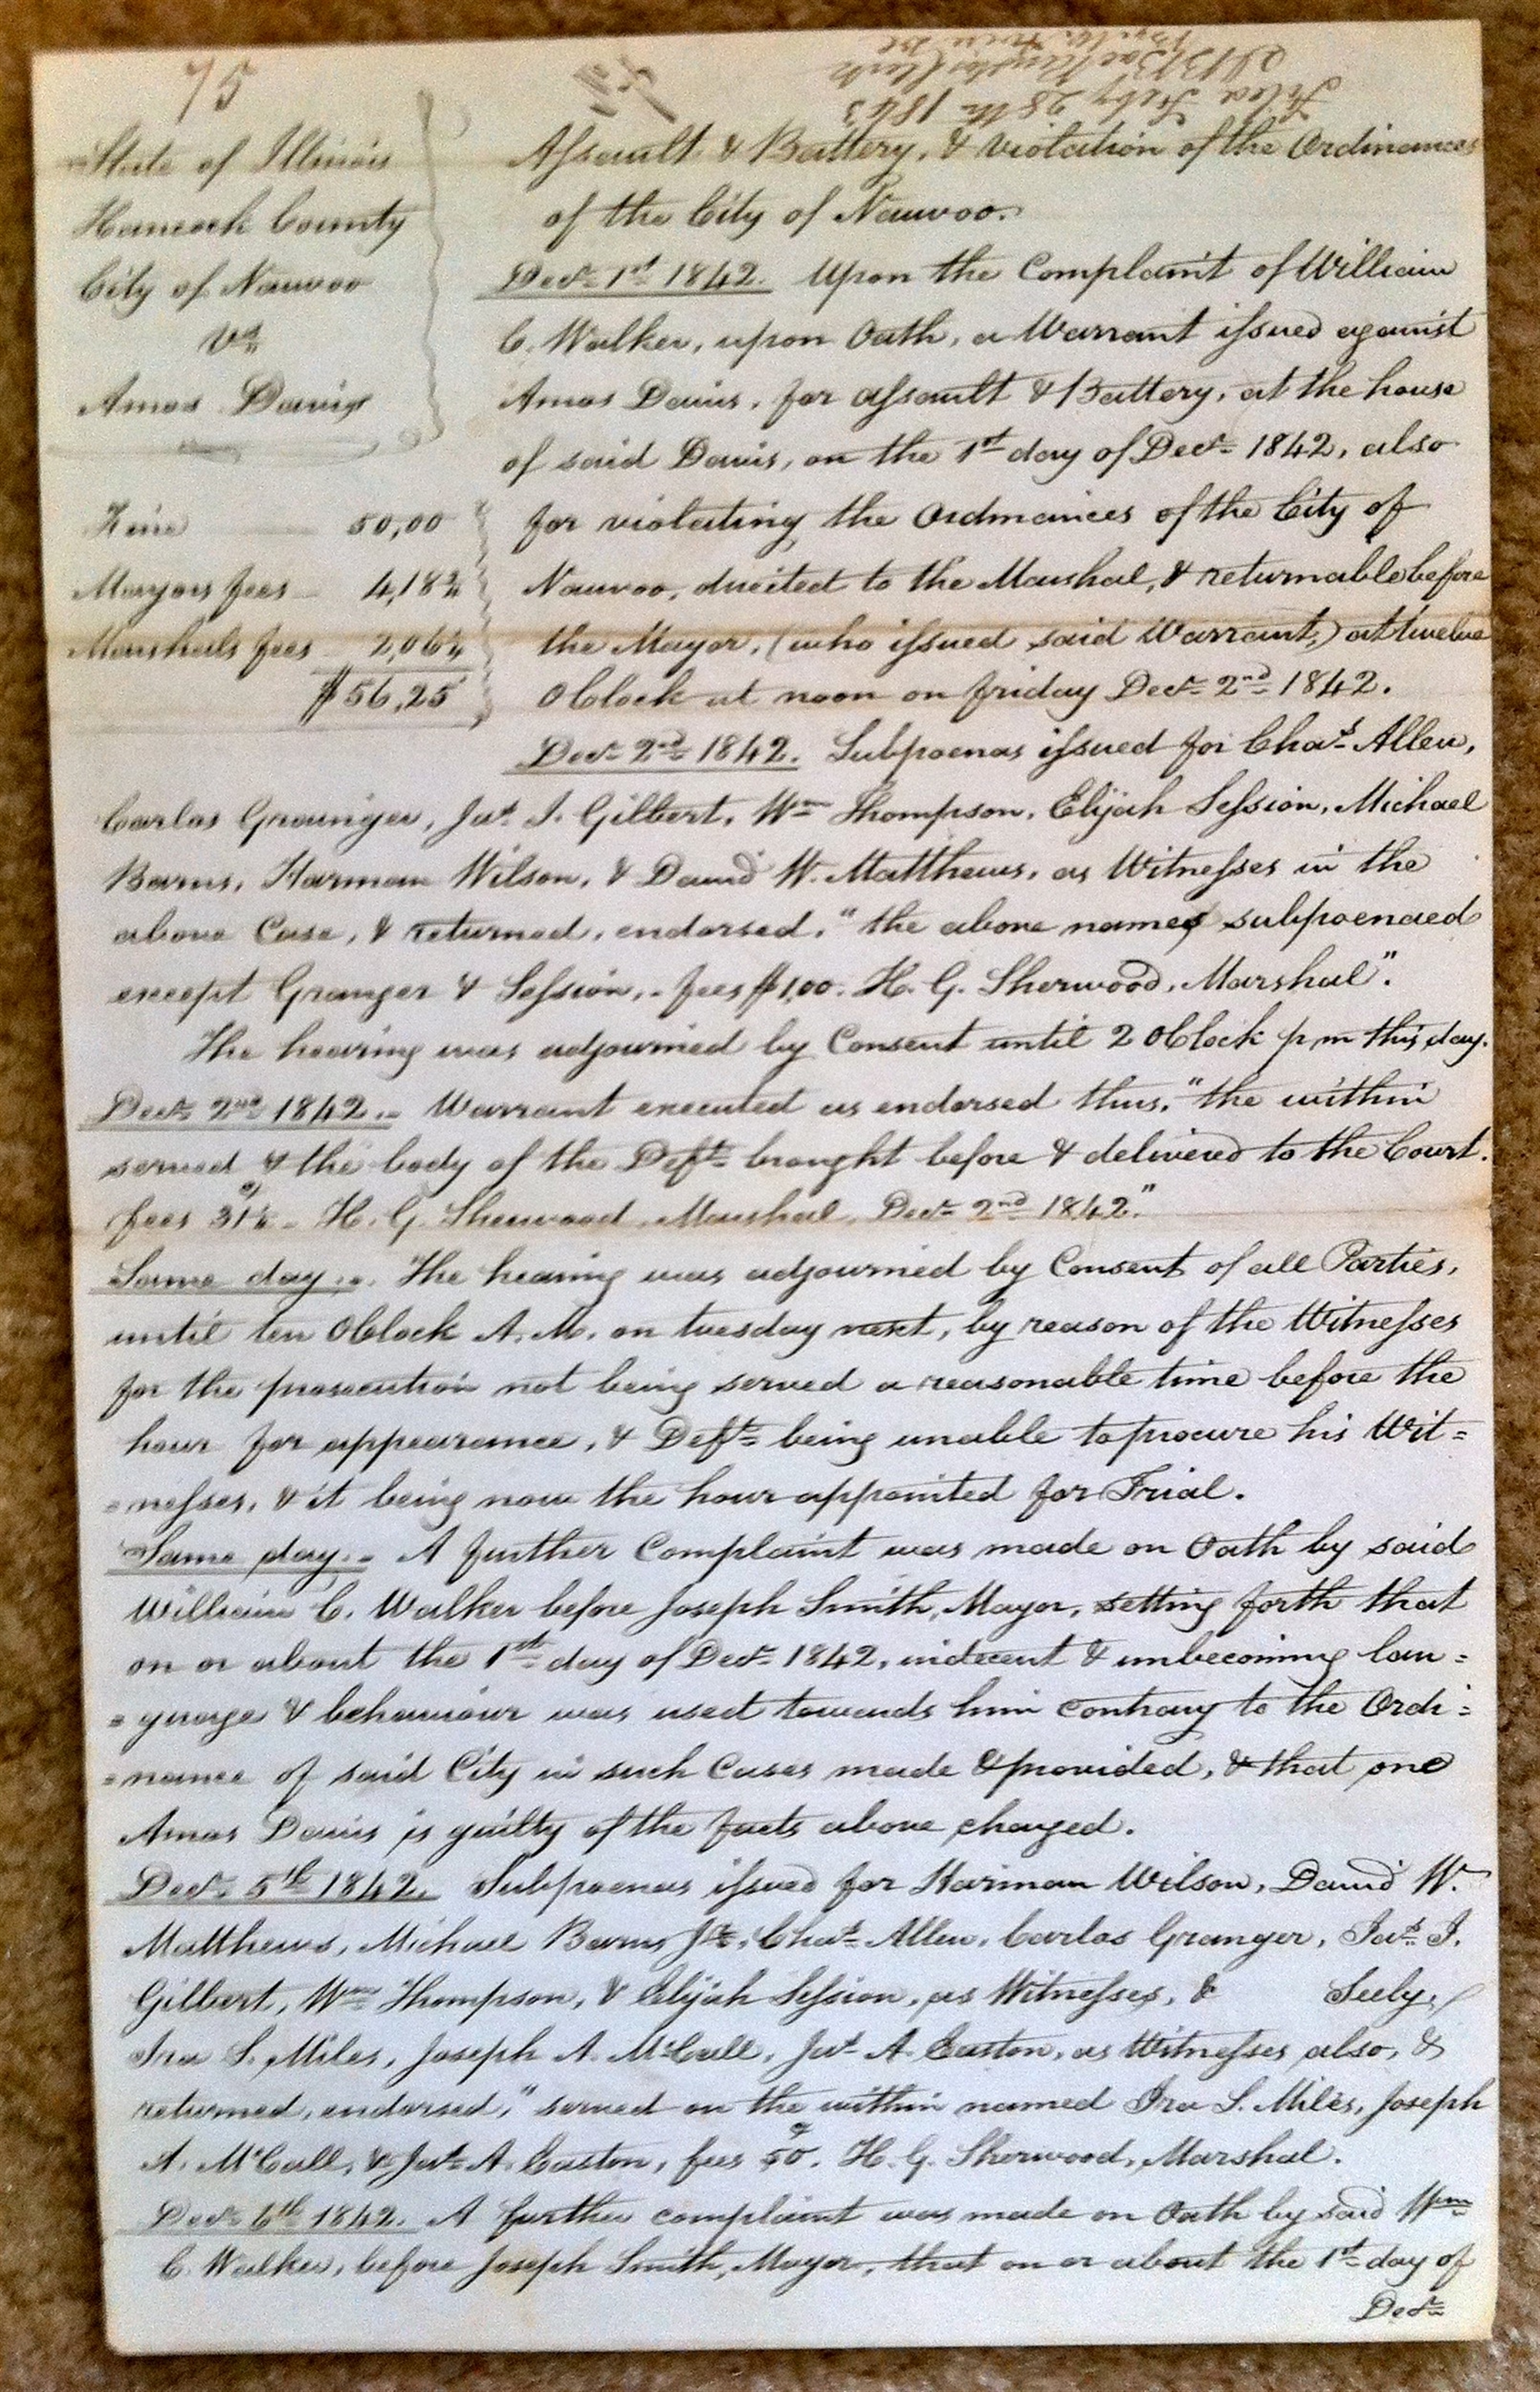 75
Filed Feby 28th 1843
State of Illinois
Hancock County
City of Nauvoo
vs
Amos Davis
Fine 50,00
Mayors fees 4,18¾
Marshals fees 2,06¼
$56,25
Assault & Battery, & violation of the Ordinances
of the City of Nauvoo.
Decr. 1st 1842. Upon the Complaint of William
C. Walker, upon Oath, a Warrant issued against
Amos Davis, for assault & Battery, at the house
of said Davis, on the 1st day of Decr. 1842, also
for violating the Ordinances of the City of
Nauvoo, directed to the Marshal, & returnable before
the Mayor, (who issued said Warrant,) at twelve
O'Clock at noon on friday Decr. 2nd 1842.
Decr. 2nd 1842. Subpoenas issued for Chas. Allen,
Carlos Grainger, Jas. J. Gilbert, Wm Thompson, Elijah Session, Michael
Barns, Harman Wilson, & David W. Matthews, as Witnesses in the
above Case, & returned, endorsed, "the above names subpoenaed
except Granger & Session, - fees $1,00. H. G. Sherwood, Marshal".
The hearing was adjourned by Consent until 2 O'Clock p,m this day.
Decr. 2nd 1842. - Warrant executed as endorsed thus, "the within
served & the body of the Deft. brought before & delivered to the Court.
fees 31¼ - H. G. Sherwood Marshal, Decr. 2nd 1842."
Same day. - The hearing was adjourned by Consent of all Parties,
until ten O'Clock A. M. on tuesday next, by reason of the Witnesses
for the prosecution not being served a reasonable time before the
hour for appearance, & Deft. being unable to procure his Wit=
=nesses, & it being now the hour appointed for Trial.
Same day. - A further Complaint was made on Oath by said
William C. Walker before Joseph Smith, Mayor, setting forth that
on or about the 1st day of Decr. 1842, indecent & unbecoming lan=
=guage & behaviour was used towards him contrary to the Ordi=
=nance of said City in such Cases made & provided, & that one
Amos Davis is guilty of the facts above charged.
Decr. 5th 1842. Subpoenas issued for Harman Wilson, David W.
Matthews, Michael Barns Jr., Chas. Allen, Carlos Granger, Jas. J.
Gilbert, Wm Thompson, & Elijah Session, as Witnesses, & Seely,
Ira S. Miles, Joseph A. McCall, Jas. A. Easton, as Witnesses also, &
returned, endorsed, "served on the within named Ira S. Miles, Joseph
A. McCall, & Jas. A. Easton, fees 50. H. G. Sherwood, Marshal.
Decr. 6th 1842. A further complaint was made on Oath by said Wm
C. Walker, before Joseph Smith, Mayor, that on or about the 1st day of
Decr.